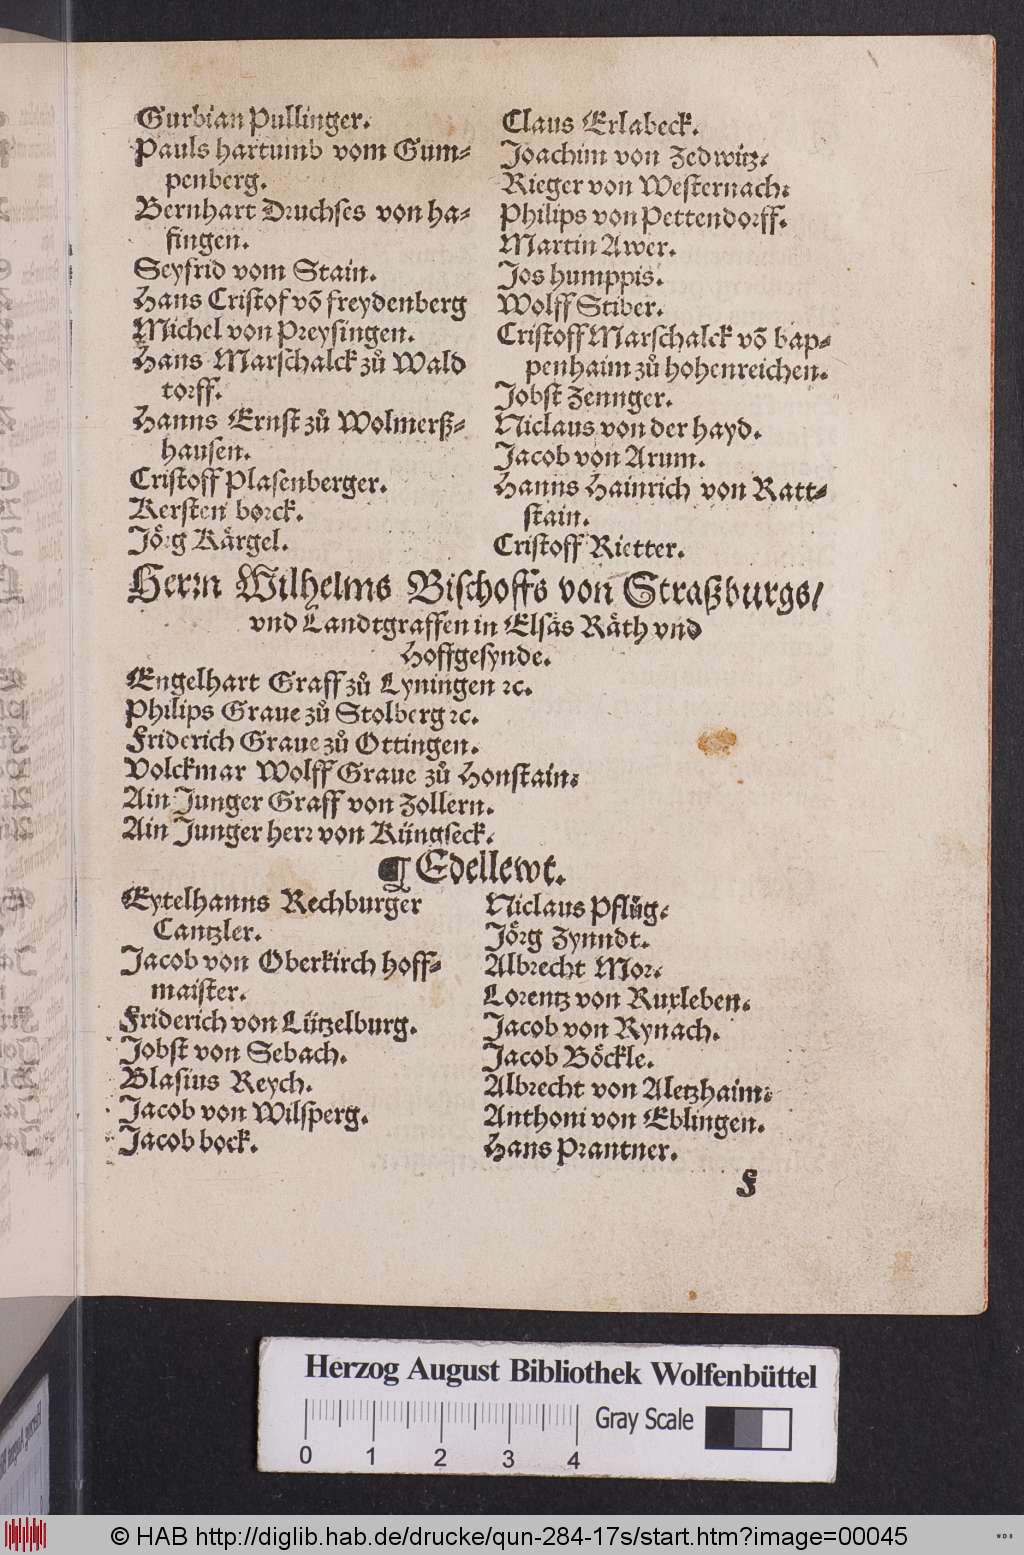 Gurbian Pullinger.
Pauls hartumb vom Gum-
penberg.
Bernhart Druchses von ha-
singen.
Seyfrid vom Stain.
Hans Cristof vō freydenberg
Michel von Preysingen.
Hans Marschalck zů Wald
torff.
Hanns Ernst zů Wolmerß-
hausen.
Cristoff Plasenberger.
Kersten borck.
Jörg Kärgel.
Claus Erlabeck.
Joachim von Zedwitz.
Rieger von Westernach.
Philips von Pettendorff.
Martin Awer.
Jos humppis.
Wolff Stiber.
Cristoff Marschalck vō bap-
penhaim zů hohenreichen.
Jobst Zennger.
Niclaus von der hayd.
Jacob von Arum.
Hanns Hainrich von Ratt-
stain.
Cristoff Rietter.
Herrn Wilhelms Bischoffs von Straßburgs/
vnd Landtgraffen in Elsäs Räth vnd
Hoffgesynde.
Engelhart Graff zů Lyningen ꝛc.
Philips Graue zů Stolberg ꝛc.
Friderich Graue zů Ottingen.
Volckmar Wolff Graue zů Honstain.
Ain Junger Graff von Zollern.
Ain Junger herr von Küngseck.
¶ Edellewt.
Eytelhanns Rechburger
Cantzler.
Jacob von Oberkirch hoff-
maister.
Friderich von Lützelburg.
Jobst von Sebach.
Blasius Reych.
Jacob von Wilsperg.
Jacob bock.
Niclaus Pflüg.
Jörg Zynndt.
Albrecht Mor.
Lorentz von Ruxleben.
Jacob von Rynach.
Jacob Böckle.
Albrecht von Aletzhaim.
Anthoni von Eblingen.
Hans Prantner.
F
Herzog August Bibliothek Wolfenbüttel
Gray Scale
0 1 2 3 4
© HAB http://diglib.hab.de/drucke/qun-284-17s/start.htm?image=00045